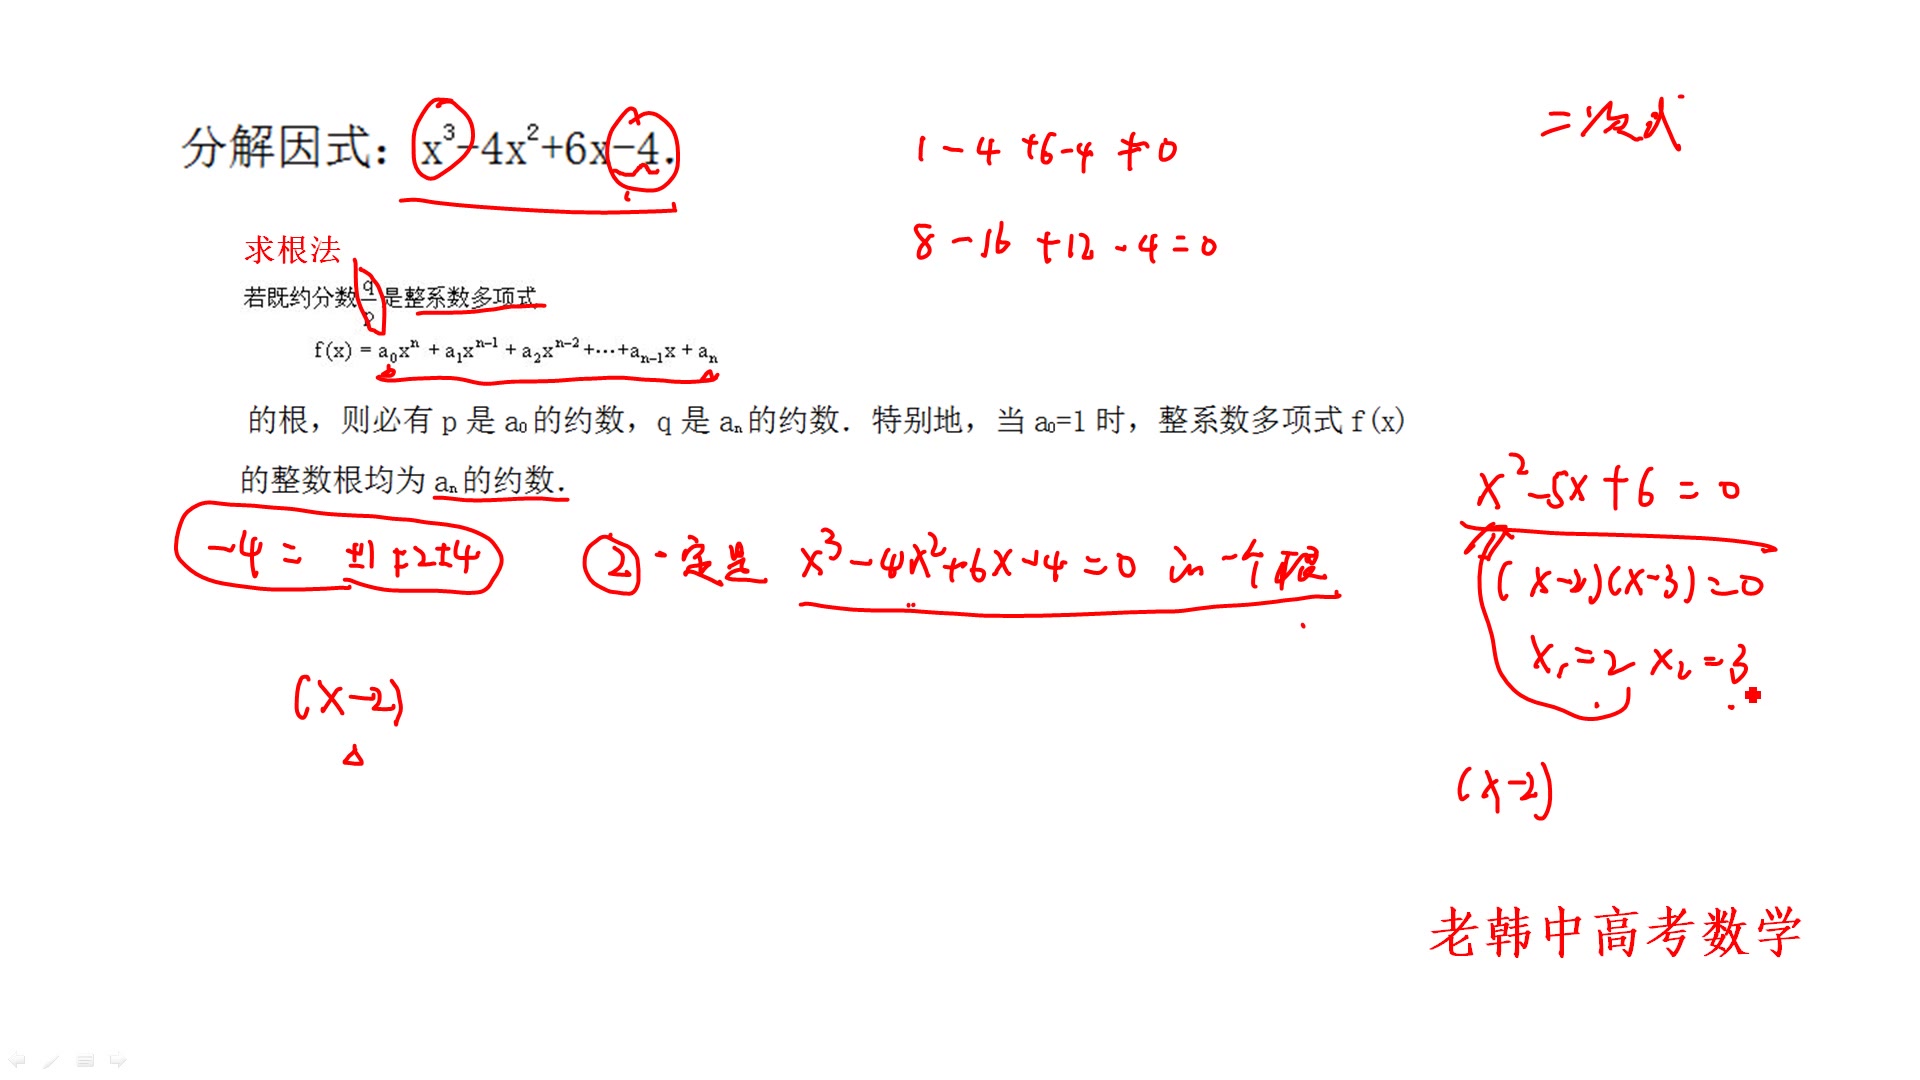 二次式
分解因式：x³-4x²+6x-4.
1-4+6-4≠0
8-16+12-4=0
求根法
若既约分数q/p是整系数多项式
f(x) = a₀xⁿ + a₁xⁿ⁻¹ + a₂xⁿ⁻² +…+aₙ₋₁x + aₙ
的根，则必有 p 是 a₀ 的约数，q 是 aₙ 的约数．特别地，当 a₀=1 时，整系数多项式 f(x)
的整数根均为 aₙ 的约数．
-4 = ±1 ±2 ±4
② 一定是 x³-4x²+6x-4=0 的一个根
x²-5x+6=0
(x-2)(x-3)=0
x₁=2 x₂=3
(x-2)
(x-2)
老韩中高考数学